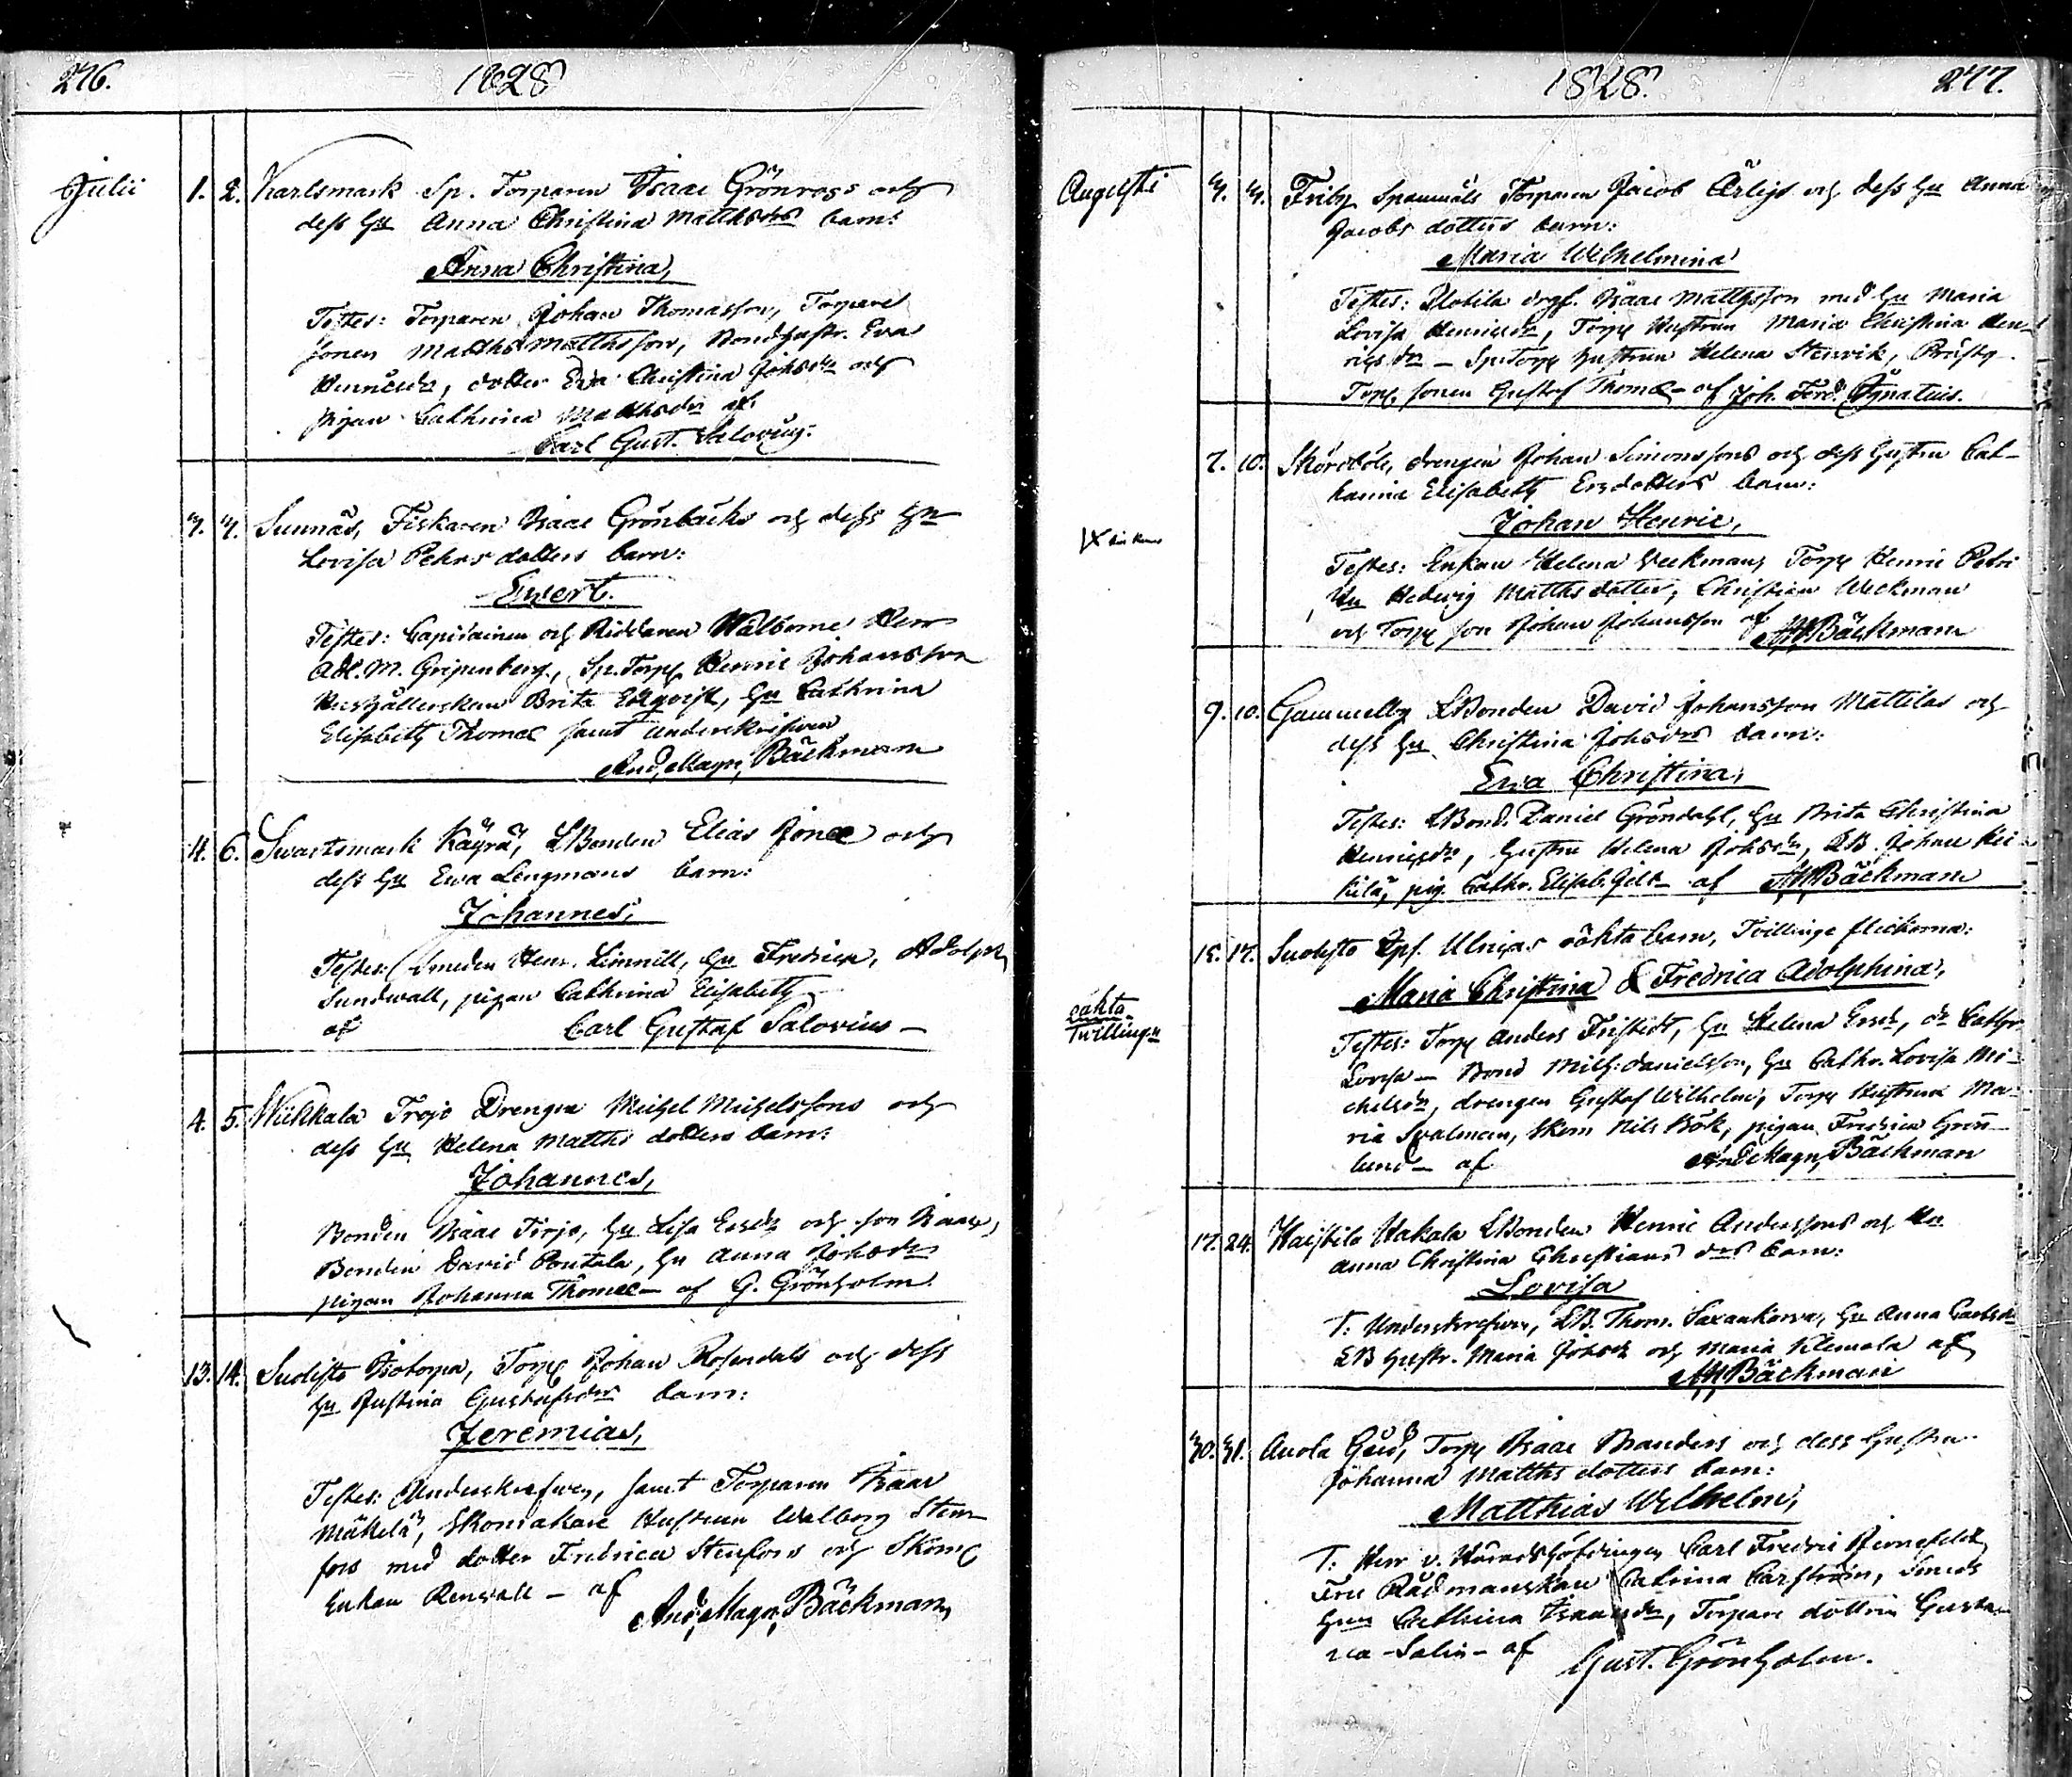 276. 1828
Julii 1. 2. Karlsmark Sp. Torparen Isaac Grönroos och
dess Hu Anna Christina Matthsdrs barn:
Anna Christina,
Testes: Torparen Johan Thomasson, Torpare
sonen Matths Matthsson, Bondhustr. Eva
Henricsdr, dotter Eva Christina Johsdr och
pigan Cathrina Matthsdr af
Carl Gust. Salovius.
3. 4. Sunnäs, Fiskaren Isaac Grönbäcks och dess Hu
Lovisa Pehrs dotters barn:
Evert.
Testes: Capitainen och Riddaren Wälborne Herr
Ad. M. Gripenberg, Sp. Torp. Henric Johansson
Hushållerskan Brita Ekqvist, Hu Cathrina
Elisabeth Thomæ samt underskrifven
And. Magn. Bäckman
4. 6. Swartsmark Käyrä, LBonden Elias Jonæ och
dess Hu Ewa Lengmans barn:
Johannes,
Testes: Smeden Henr. Limnell, Hu Fredrica, Adolph
Sundwall, pigan Cathrina Elisabeth
af Carl Gustaf Salovius
4. 5. Wiikkala Trojo Drengen Michel Michelssons och
dess Hu Helena Matths dotters barn:
Johannes,
Bonden Isaac Tirjo, Hu Lisa Ersdr och son Isaac,
Bonden David Pontela, Hu Anna Johsdr
pigan Johanna Thomæ af G. Grönholm.
13. 14. Suolisto Isotorpa, Torp Johan Rosendals och dess
Hu Justina Gustafsdrs barn:
Jeremias,
Testes: Underskrefven, samt Torparen Isaac
Mäkelä, Skomakare Hustrun Walborg Sten-
fors med dotter Fredrica Stenfors och Skom.
Enkan Renvall - af And. Magn. Bäckman
1828. 277.
Augusti 3. 3. Friby Spanmåls Torparen Jacob Ärligs och dess Hu Anna
Jacobs dotters barn:
Maria Wilhelmina
Testes: Isaac Mattsson med Hu Maria
Lovisa Henricsdr, Torp Hustrun Maria Christina Hen-
ricsdr - Sp. Torp hustrun Helena Stenvik,
Torp. sonen Gustaf Thomæ - af Joh. Ferd. Ignatius.
7. 10. Skördböle, drengen Johan Simonssons och dess Hustru Cat-
harina Elisabeth Ersdotters barn:
Johan Henric,
Testes: Enkan Helena Weckman, Torp Henric Petri
Hu Hedvig Matths dotter, Christian Weckman
och Torp son Johan Johansson af AMBäckman
9. 10. Gammelby LBonden David Johansson Mattilas och
dess Hu Christina Johsdrs barn:
Ewa Christina,
Testes: LBond. Daniel Gröndahl, Hu Brita Christina
Henricsdr, Hustru Helena Johsdr, LB. Johan Hei-
kilä, pig. Cathr. Elisab. - af AMBäckman
oäkta
Twillingar
15. 17. Suolisto Ulricas oäkta barn, Tvillinge flickorna:
Maria Christina & Fredrica Adolphina,
Testes: Torp Anders Fristedt, Hu Helena Ersdr, dr Cathr.
Lovisa - Bond Mich. Danielsson, Hu Cathr. Lovisa Mi-
chelsdr, drengen Gustaf Wilhelm, Torp Hustrun Ma-
ria Svalman, Skom Nils Bök, pigan Fredrica Grön-
lund - af And. Magn. Bäckman
17. 24. Haistila Hakala LBonden Henric Anderssons och Hu
Anna Christina Christians drs barn:
Lovisa
T: Underskrefven, LB. Thom. Saxankarva, Hu Anna Carlsdr
LB hustr. Maria Johsdr och Maria Klemola af
AMBäckman
30. 31. Anola Gård, Torp Isaac Branders och dess hustru
Johanna Matths dotters barn:
Matthias Wilhelm,
T: Herr v. Häradshöfdingen Carl Fredric Jernefelt,
Fru Rådmanskan Catrina Carström, Smeds
Hun Cathrina Isaacsdr, Torpare dottren Gusta-
va Salin - af Gust. Grönholm.